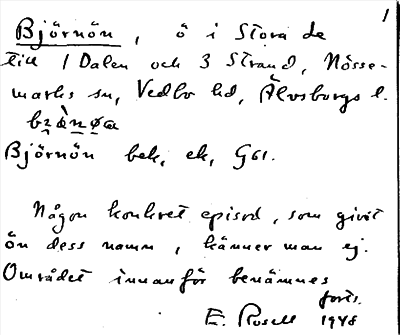 1
Björnön, ö i Stora Le
till 1 Dalen och 3 Strand, Nösse-
marks sn, Vedbo hd, Älvsborgs l.
Björnön bek, ek, G61.
Någon konkret episod, som givit
ön dess namn, känner man ej.
Området innanför benämnes
forts.
E. Rosell 1948